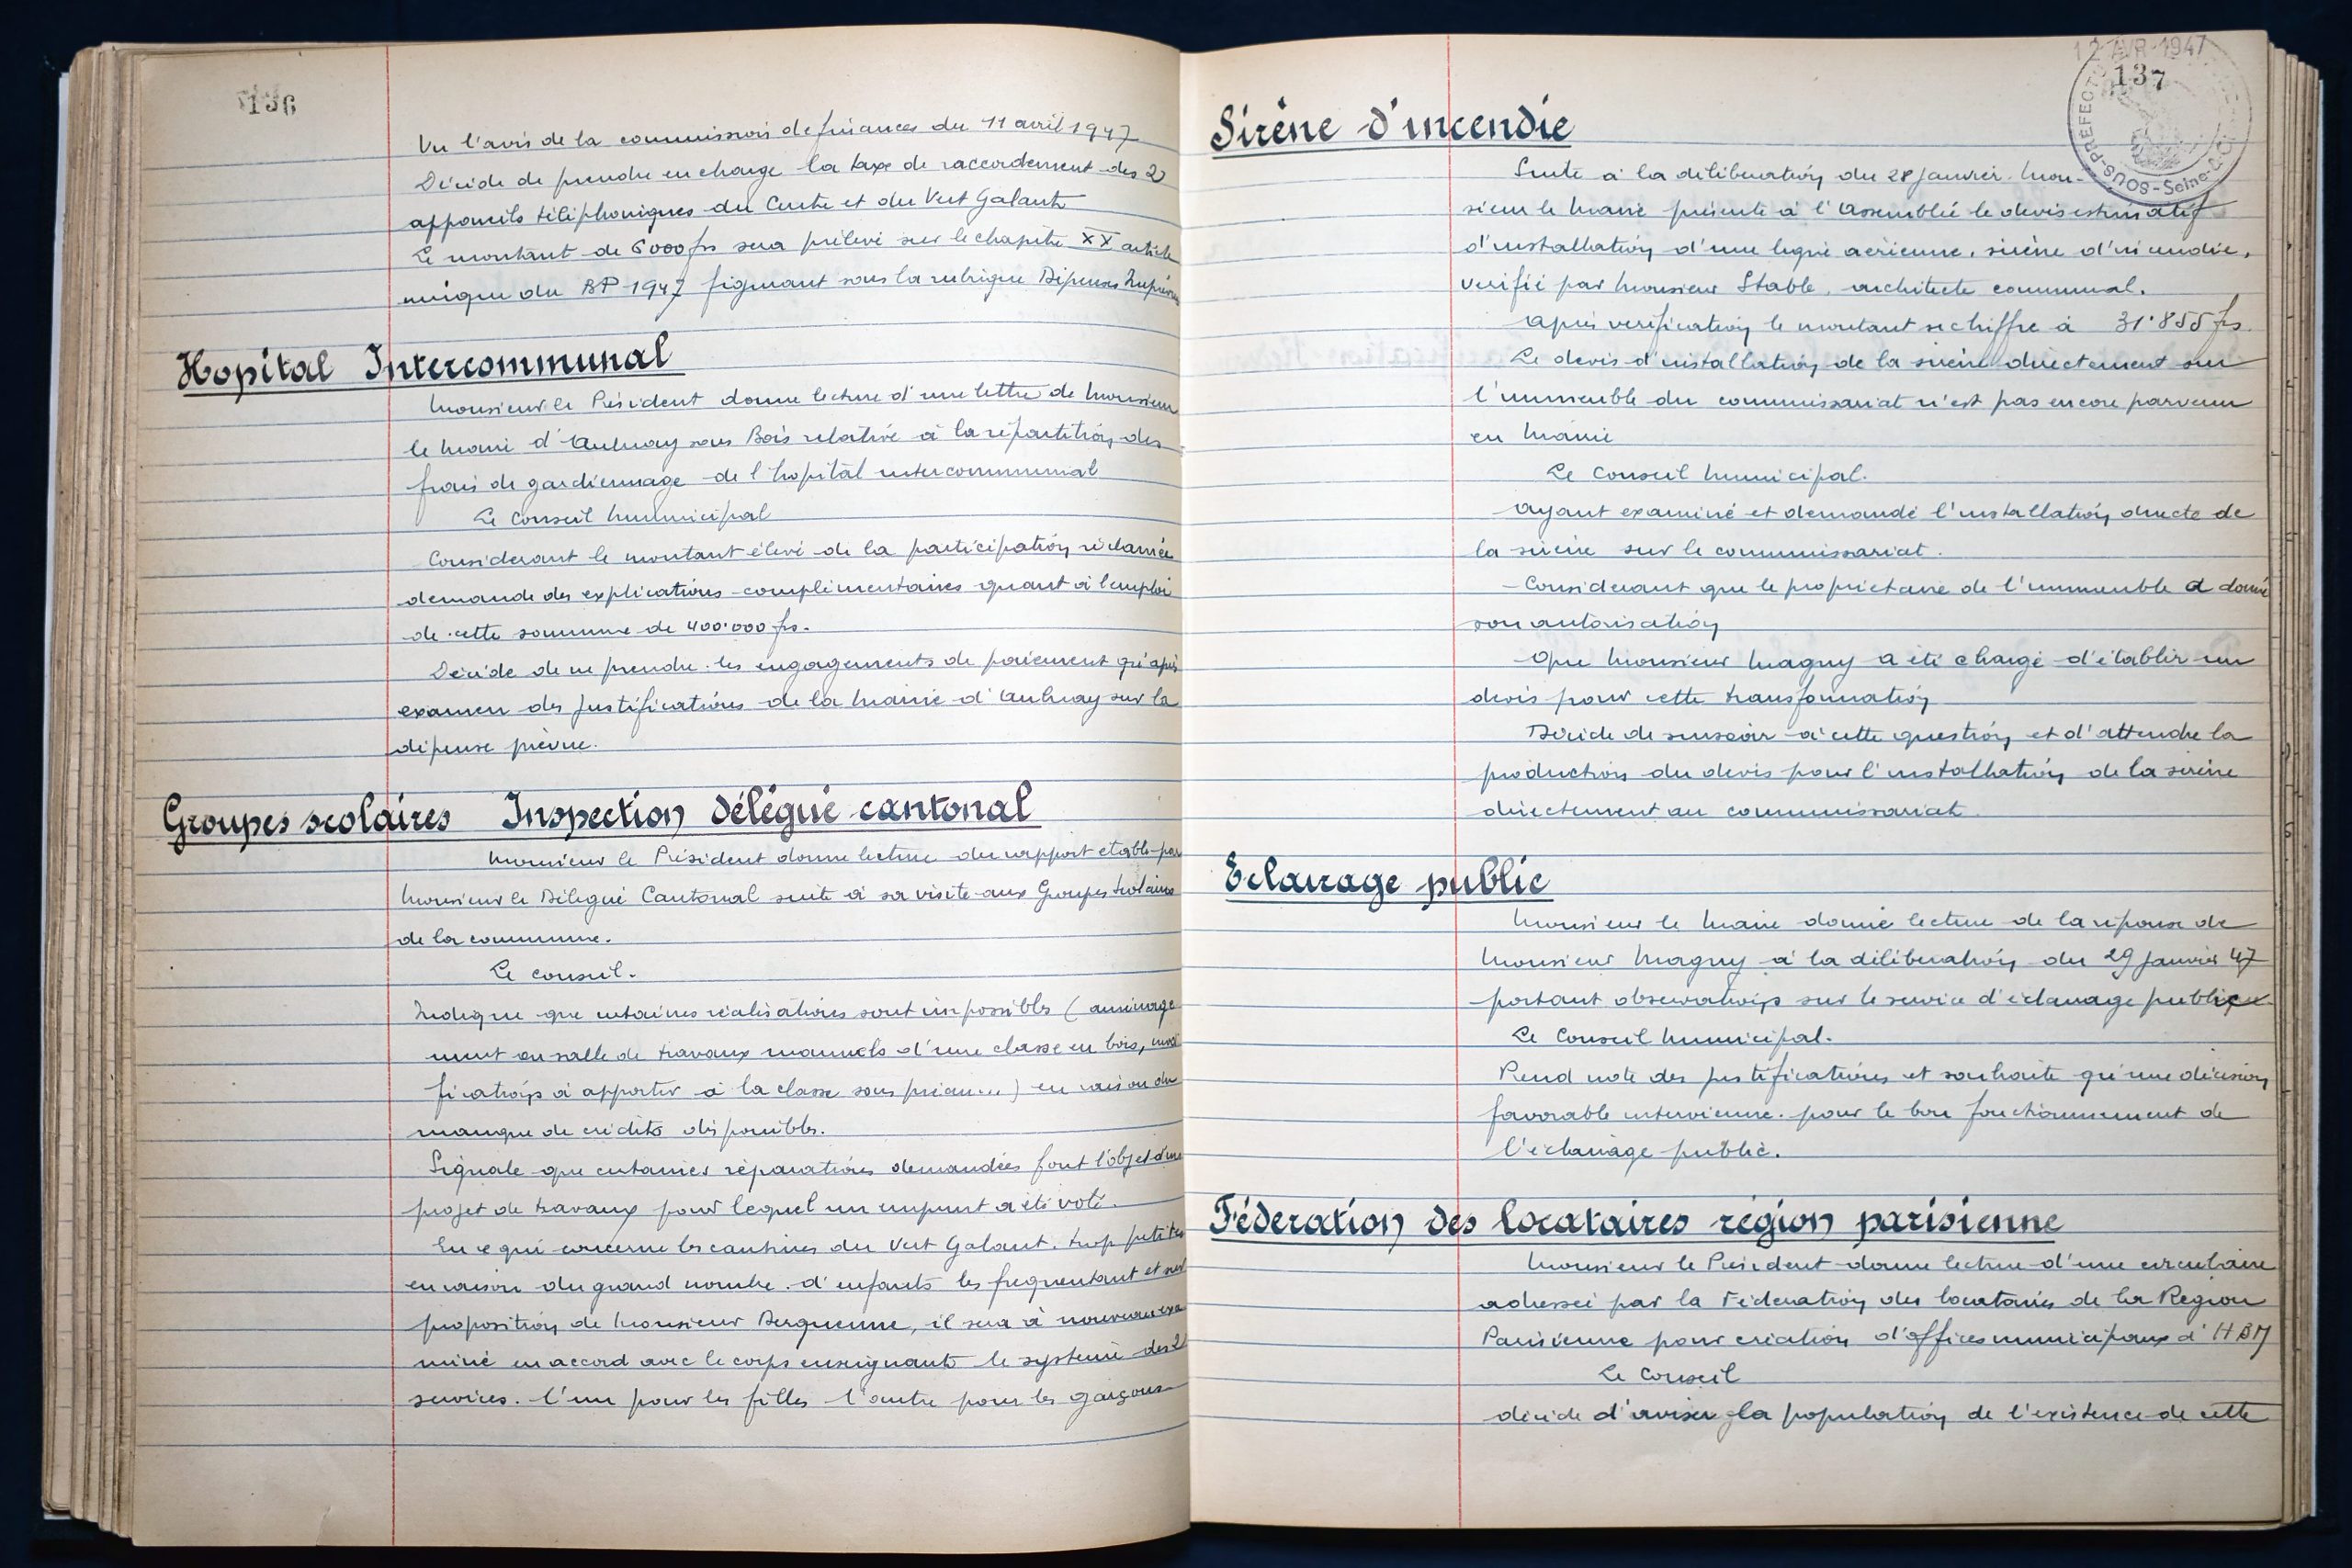 136
Vu l'avis de la commission de finances du 11 avril 1947
Décide de prendre en charge la taxe de raccordement des 2
appareils téléphoniques du Centre et du Vert Galant
Le montant de 6000 frs sera prélevé sur le chapitre XX article
unique du BP 1947 figurant sous la rubrique Dépenses
Hopital Intercommunal
Monsieur le Président donne lecture d'une lettre de Monsieur
le Maire d'Aulnay sous Bois relative à la répartition des
frais de gardiennage de l'hopital intercommunal
Le Conseil Municipal
Considerant le montant élevé de la participation réclamée
demande des explications complémentaires quant à l'emploi
de cette somme de 400.000 frs.
Décide de ne prendre les engagements de paiement qu'après
examen des justifications de la Mairie d'Aulnay sur la
dépense prévue.
Groupes scolaires Inspection Délégué cantonal
Monsieur le Président donne lecture du rapport établi par
Monsieur le Délégué Cantonal suite à sa visite aux Groupes Scolaires
de la commune.
Le conseil.
Indique que certaines réalisations sont impossibles (aménage
ment en salle de travaux manuels d'une classe en bois, modi
fications à apporter à la classe sous préau...) en raison du
manque de crédits disponibles.
Signale que certaines réparations demandées font l'objet d'un
projet de travaux pour lequel un emprunt a été voté.
En ce qui concerne les cantines du Vert Galant, trop petites
en raison du grand nombre d'enfants les frequentant et sur
proposition de Monsieur Berguenne, il sera à nouveau exa
miné en accord avec le corps enseignants le système des 2
services. l'un pour les filles l'autre pour les garçons
12 AVR 1947
137
SOUS-PREFECTURE
Seine-&-O
Sirène d'incendie
Suite à la délibération du 28 janvier. Mon-
sieur le Maire présente à l'Assemblée le devis estimatif
d'installation d'une ligne aérienne, sirène d'incendie,
verifié par Monsieur Stable, architecte communal.
Après verification le montant se chiffre à 31.855 frs.
Le devis d'installation de la sirène directement sur
l'immeuble du commissariat n'est pas encore parvenu
en Mairie
Le Conseil Municipal.
Ayant examiné et demandé l'installation directe de
la sirène sur le commissariat.
Considerant que le propriétaire de l'immeuble a donné
son autorisation
Que Monsieur Magny a été chargé d'établir un
devis pour cette transformation
Décide de surseoir à cette question et d'attendre la
production du devis pour l'installation de la sirène
directement au commissariat.
Eclairage public
Monsieur le Maire donne lecture de la réponse de
Monsieur Magny à la délibération du 29 janvier 47
portant observations sur le service d'éclairage public
Le Conseil Municipal.
Prend note des justifications et souhaite qu'une décision
favorable intervienne. pour le bon fonctionnement de
l'éclairage public.
Féderation des locataires région parisienne
Monsieur le Président donne lecture d'une circulaire
adressée par la Féderation des locataires de la Région
Parisienne pour création d'offices municipaux d'HBM
Le Conseil
décide d'aviser la population de l'existence de cette